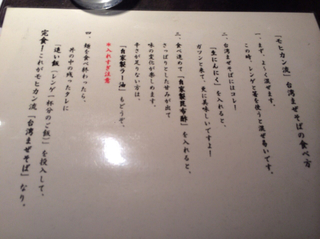 「モヒカン流」台湾まぜそばの食べ方
一、まず、よーく混ぜます。
この時、レンゲと箸を使うと混ぜ易いです。
二、台湾まぜそばにはコレ！
「生にんにく」を入れると、
ガツンと来て、更に美味しいですよ！
三、食べ進めて「自家製昆布酢」を入れると、
さっぱりとした甘みが出て
味の変化が楽しめます。
辛さが足りない方は、
「自家製ラー油」もどうぞ。
※入れすぎ注意
四、麺を食べ終わったら、
丼の中の残ったタレに
「追い飯（レンゲ一杯分のご飯）」を投入して、
完食！これがモヒカン流「台湾まぜそば」なり。